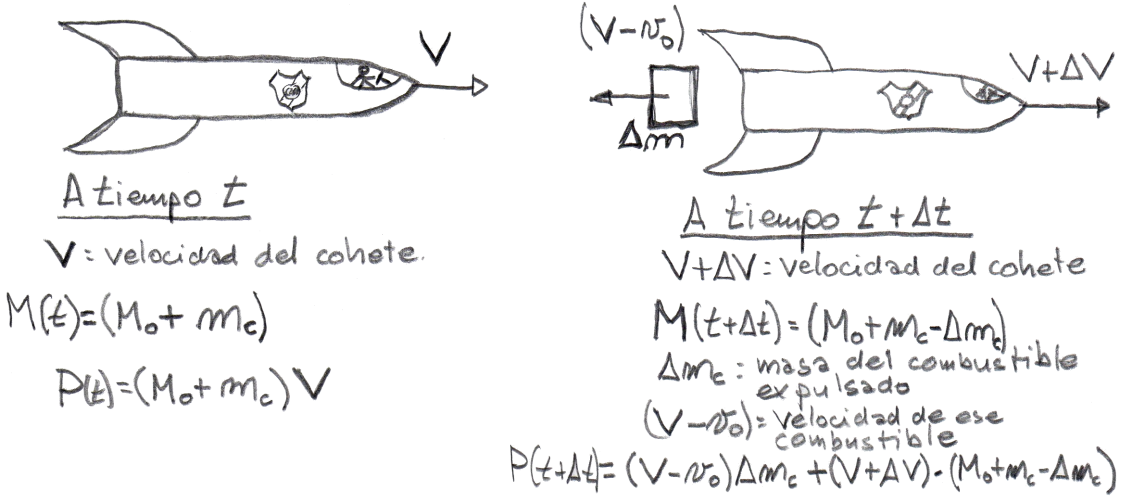 V
A tiempo t
V: velocidad del cohete.
M(t)=(M₀+ m_c)
P(t)=(M₀+m_c)V
(V-v₀)
V+ΔV
Δm
A tiempo t+Δt
V+ΔV: velocidad del cohete
M(t+Δt)=(M₀+m_c-Δm_c)
Δm_c: masa del combustible
expulsado
(V-v₀)= velocidad de ese
combustible
P(t+Δt)= (V-v₀)Δm_c+(V+ΔV)·(M₀+m_c-Δm_c)